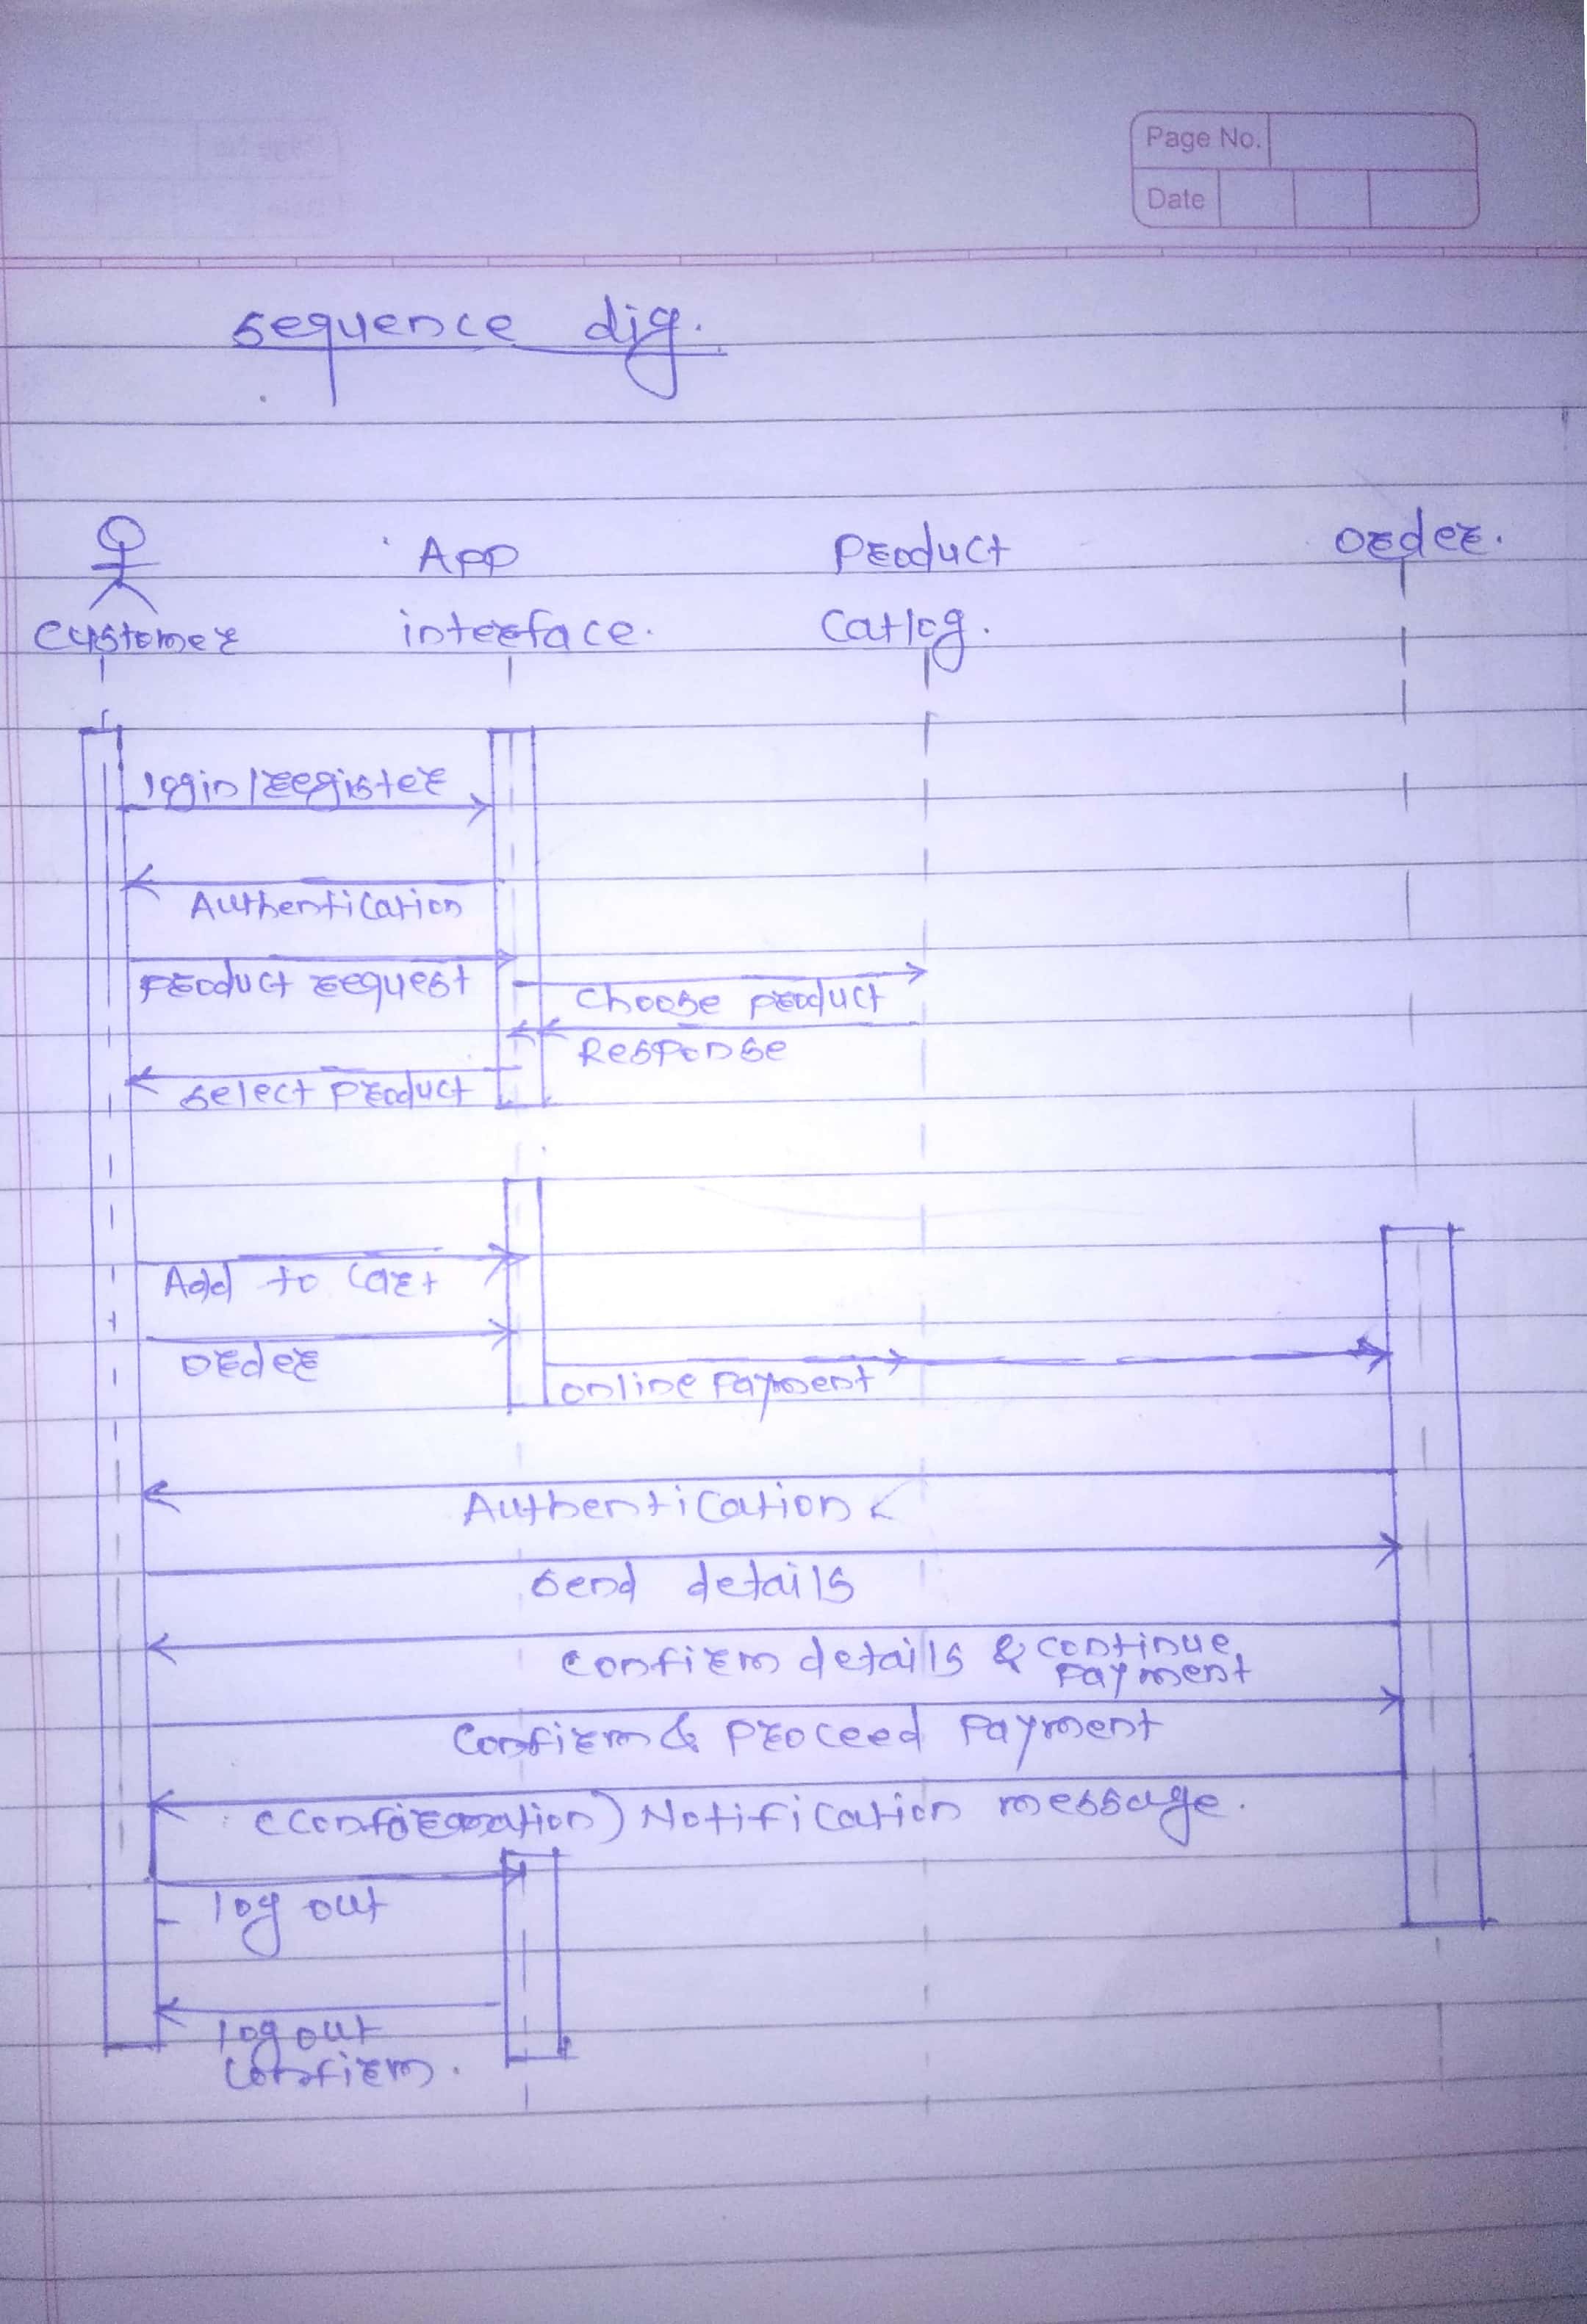 Page No.
Date
sequence dig.
App
Product
order.
customer
interface.
Catlog.
login/register
Authentication
Product request
choose product
Response
select product
Add to Cart
order
online Payment
Authentication
send details
confirm details & continue
payment
Confirm & proceed Payment
(Conformation) Notification message.
log out
log out
Confirm.